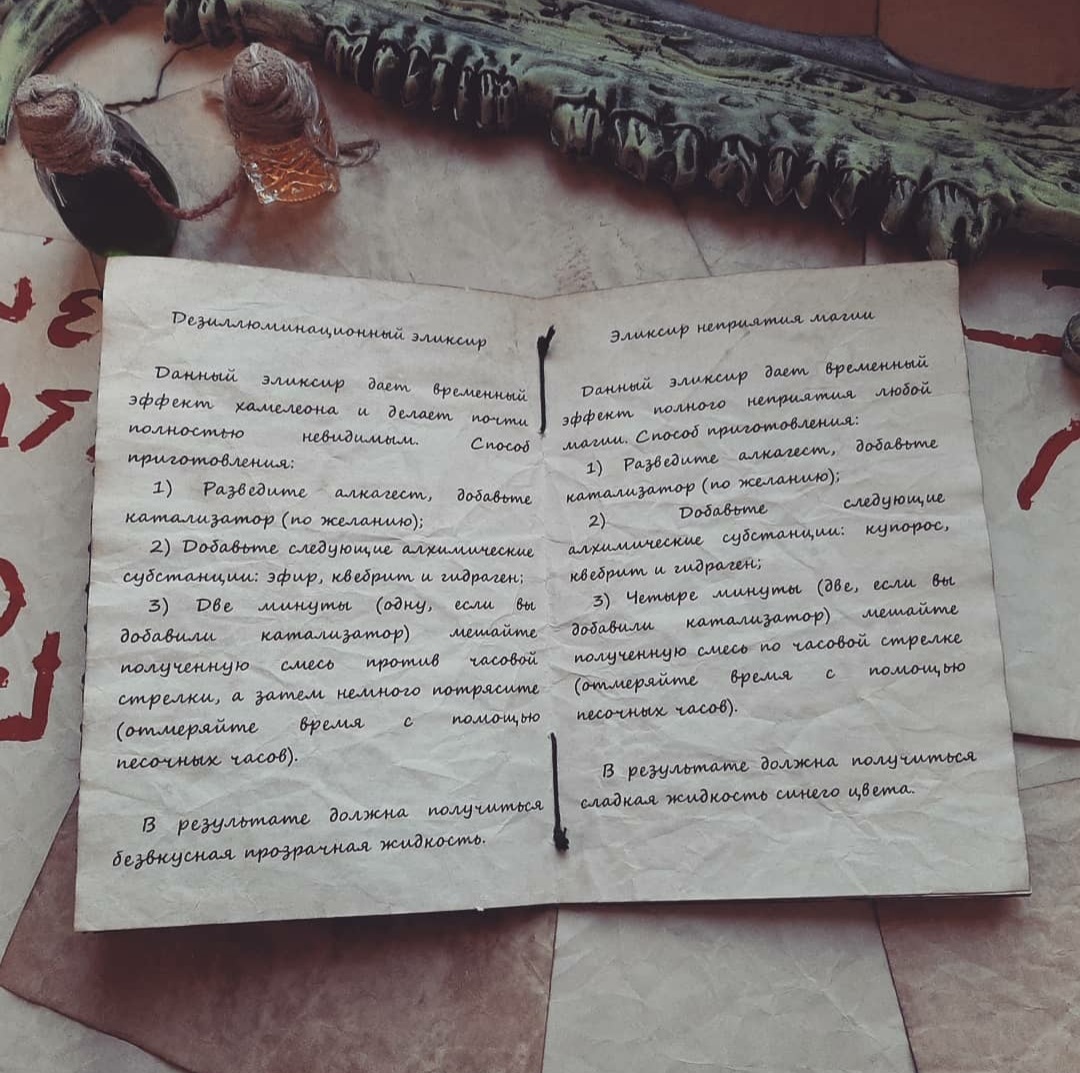 Дезиллюминационный эликсир
Данный эликсир дает временный
эффект хамелеона и делает почти
полностью невидимым. Способ
приготовления:
1) Разведите алкагест, добавьте
катализатор (по желанию);
2) Добавьте следующие алхимические
субстанции: эфир, квебрит и гидраген;
3) Две минуты (одну, если вы
добавили катализатор) мешайте
полученную смесь против часовой
стрелки, а затем немного потрясите
(отмеряйте время с помощью
песочных часов).
В результате должна получиться
безвкусная прозрачная жидкость.
Эликсир неприятия магии
Данный эликсир дает временный
эффект полного неприятия любой
магии. Способ приготовления:
1) Разведите алкагест, добавьте
катализатор (по желанию);
2) Добавьте следующие
алхимические субстанции: купорос,
квебрит и гидраген;
3) Четыре минуты (две, если вы
добавили катализатор) мешайте
полученную смесь по часовой стрелке
(отмеряйте время с помощью
песочных часов).
В результате должна получиться
сладкая жидкость синего цвета.